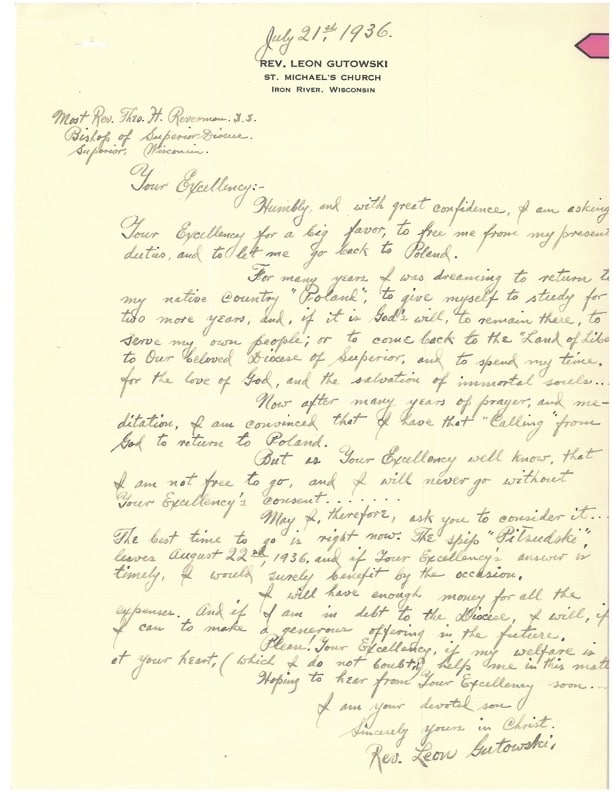 July 21st, 1936.
REV. LEON GUTOWSKI
ST. MICHAEL'S CHURCH
IRON RIVER, WISCONSIN
Most Rev. Theo. H. Reverman. D.D.
Bishop of Superior Diocese.
Superior, Wisconsin.
Your Excellency:-
Humbly, and with great confidence, I am asking
Your Excellency for a big favor, to free me from my present
duties, and to let me go back to Poland.
For many years I was dreaming to return t
my native country "Poland"; to give myself to study for
two more years, and, if it is God's will, to remain there, to
serve my own people; or to come back to the "Land of Libe
to Our beloved Diocese of Superior, and to spend my time,
for the love of God, and the salvation of immortal souls...
Now after many years of prayer, and me-
ditation, I am convinced that I have that "Calling" from
God to return to Poland.
But as Your Excellency well know, that
I am not free to go, and I will never go without
Your Excellency's consent........
May I, therefore, ask you to consider it...
The best time to go is right now. The ship "Pilsudski",
leaves August 22nd, 1936, and if Your Excellency's answer is
timely, I would surely benefit by the occasion.
I will have enough money for all the
expenses. And if I am in debt to the Diocese, I will, if
I can to make a generous offering in the future.
Please! Your Excellency, if my welfare is
at your heart, (which I do not doubt) help me in this matt
Hoping to hear from Your Excellency soon...
I am your devoted son
Sincerely yours in Christ.
Rev. Leon Gutowski.